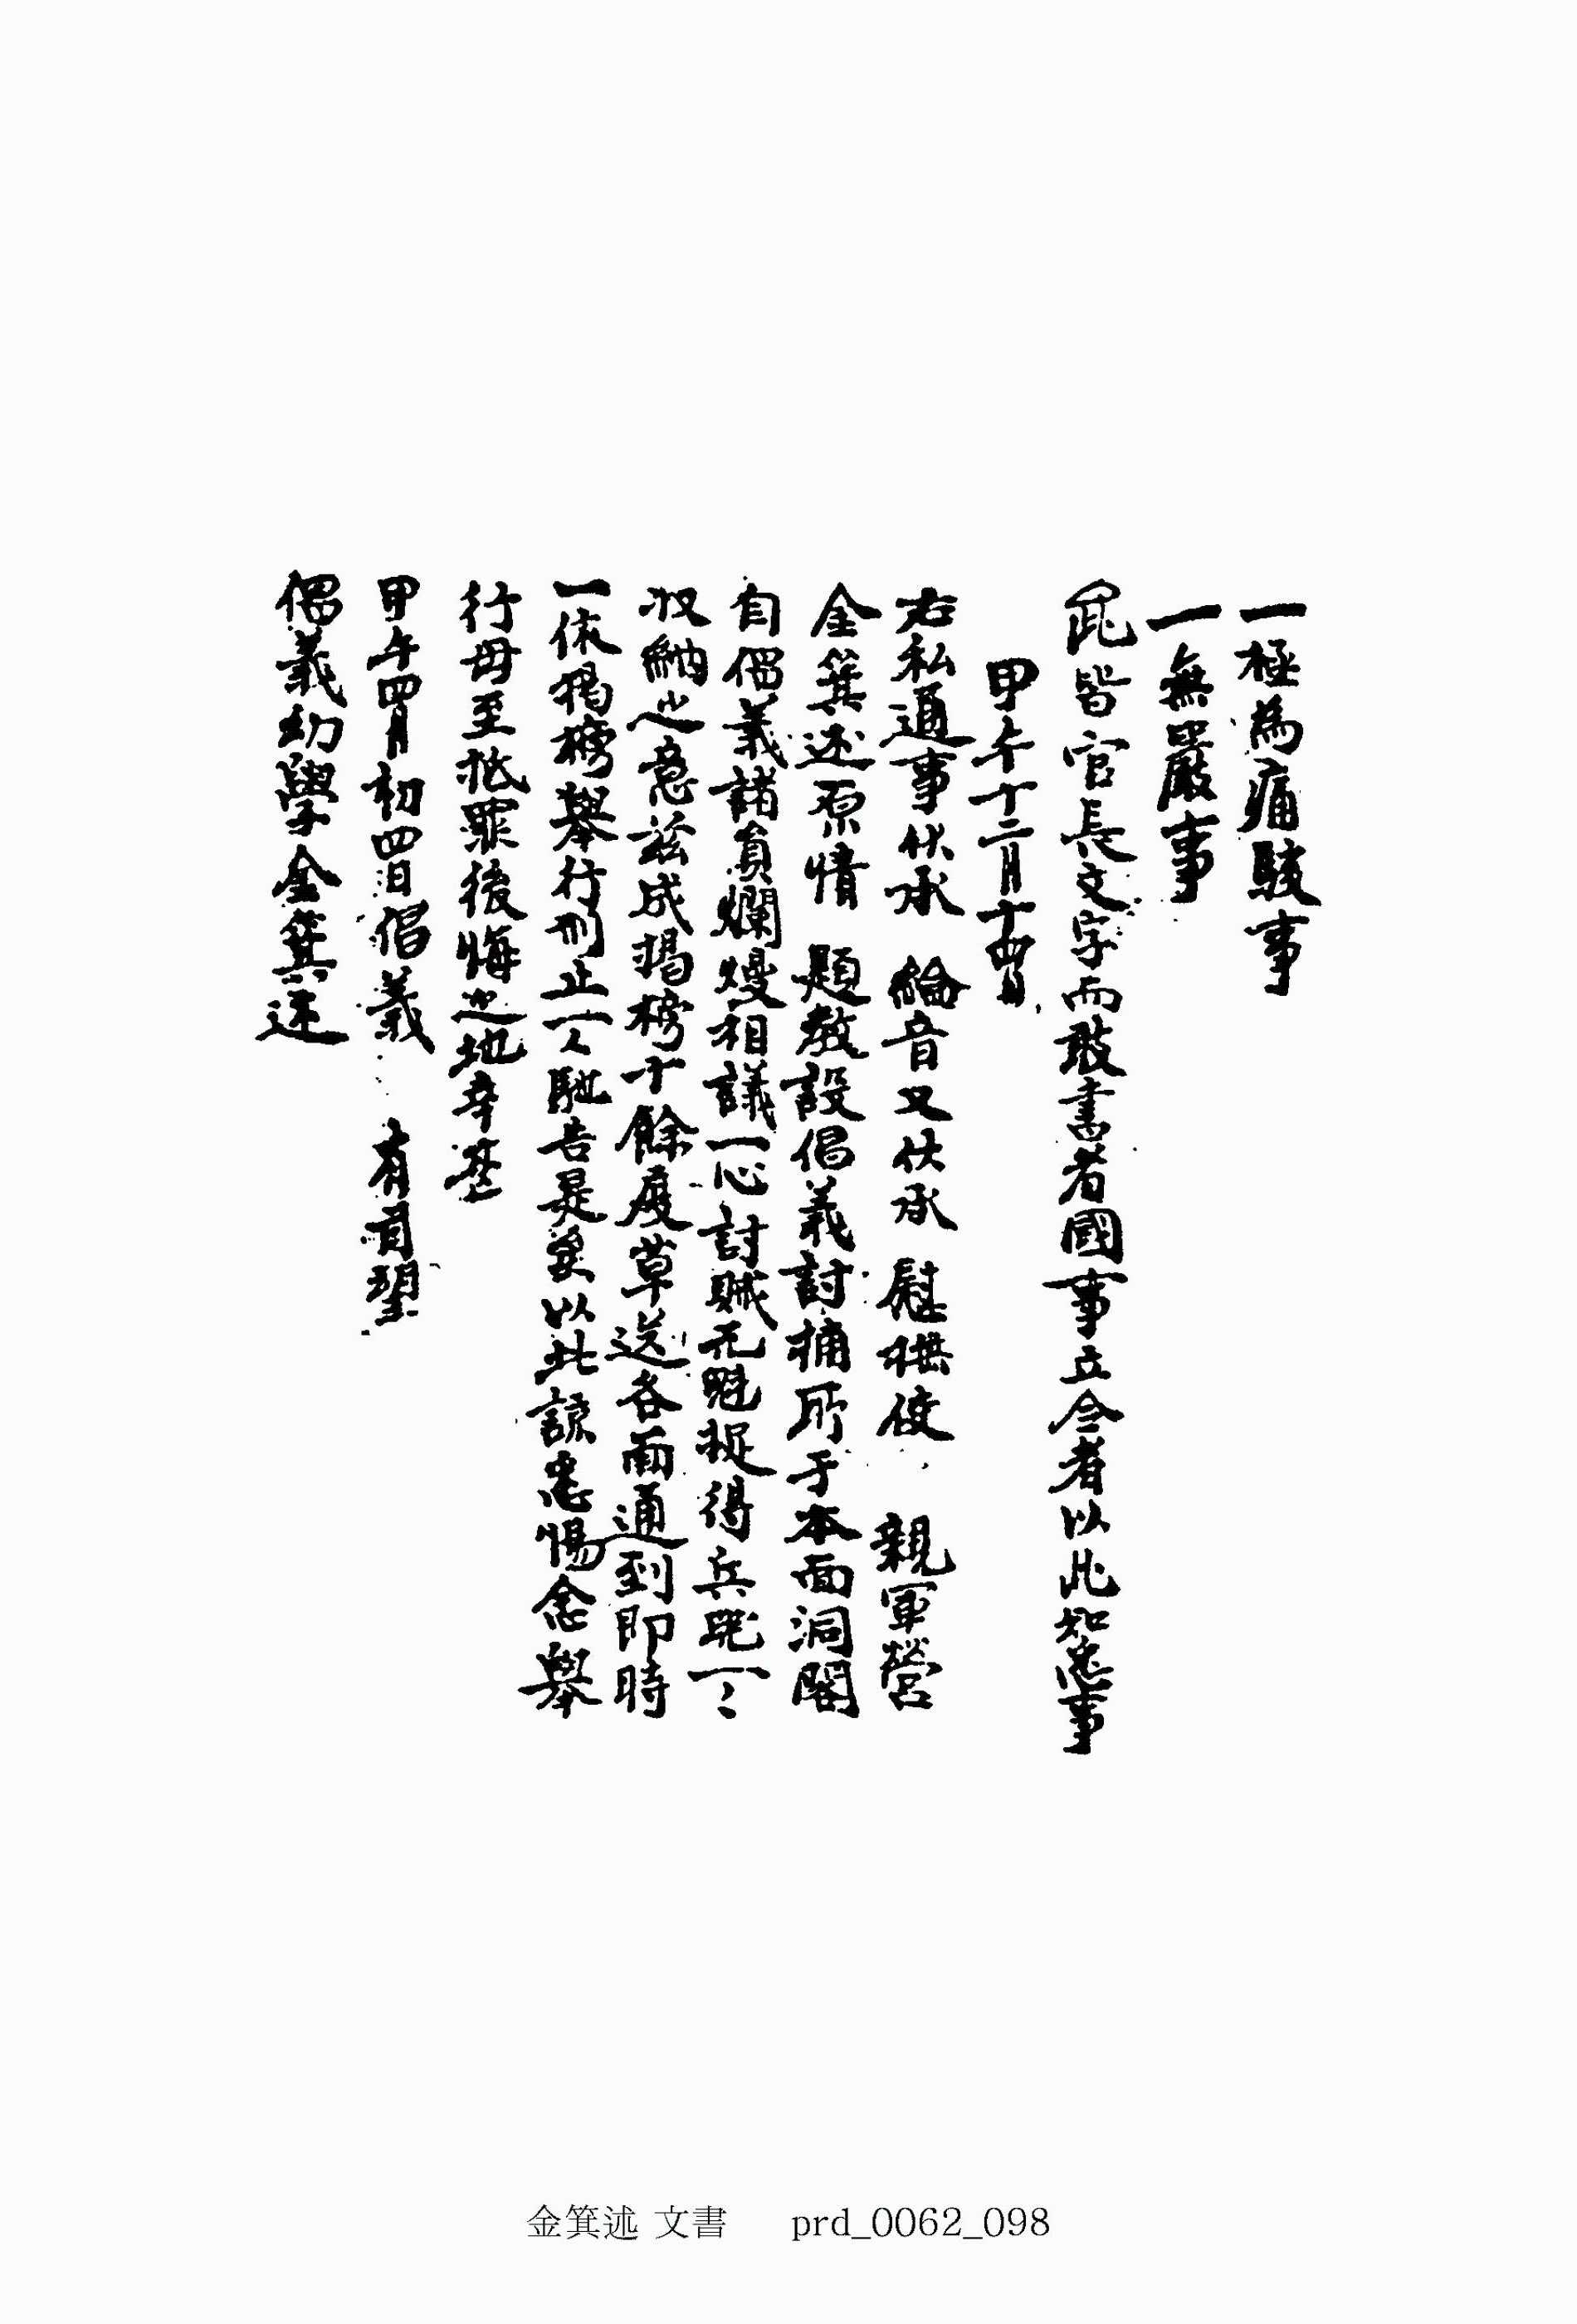 一極為痛駭事
一無嚴事
此皆官長文字而敢書者國事立令者以此知悉事
甲午十二月十四日
右私通事伏承 綸音又伏承 慰撫使 親軍營
金箕述原情 題教設倡義討捕所于本面洞閣
自倡義諸員爛熳相議一心討賊元魁捉得兵器一々
收納之意玆成揭榜十餘度草送各面通到卽時
一依揭榜擧行形止一々馳告是矣以此諒悉惕念擧
行毋至抵罪後悔之地幸甚
甲午四月初四日倡義 有司望
倡義幼學金箕述
金箕述 文書 prd_0062_098